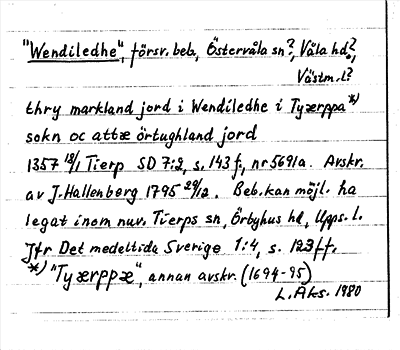 "Wendiledhe", försv. beb., Östervåla sn?, Våla hd?,
Västm. l?
thry markland jord i Wendiledhe i Tyærppa*)
sokn oc attæ örtughland jord
1357 18/1 Tierp SD 7:2, s. 143 f., nr 5691a. Avskr.
av J. Hallenberg 1795 29/12. Beb. kan möjl. ha
legat inom nuv. Tierps sn, Örbyhus hd, Upps. l.
Jfr Det medeltida Sverige 1:4, s. 123 ff.
*) "Tyærppæ", annan avskr. (1694-95)
L. Aks. 1980